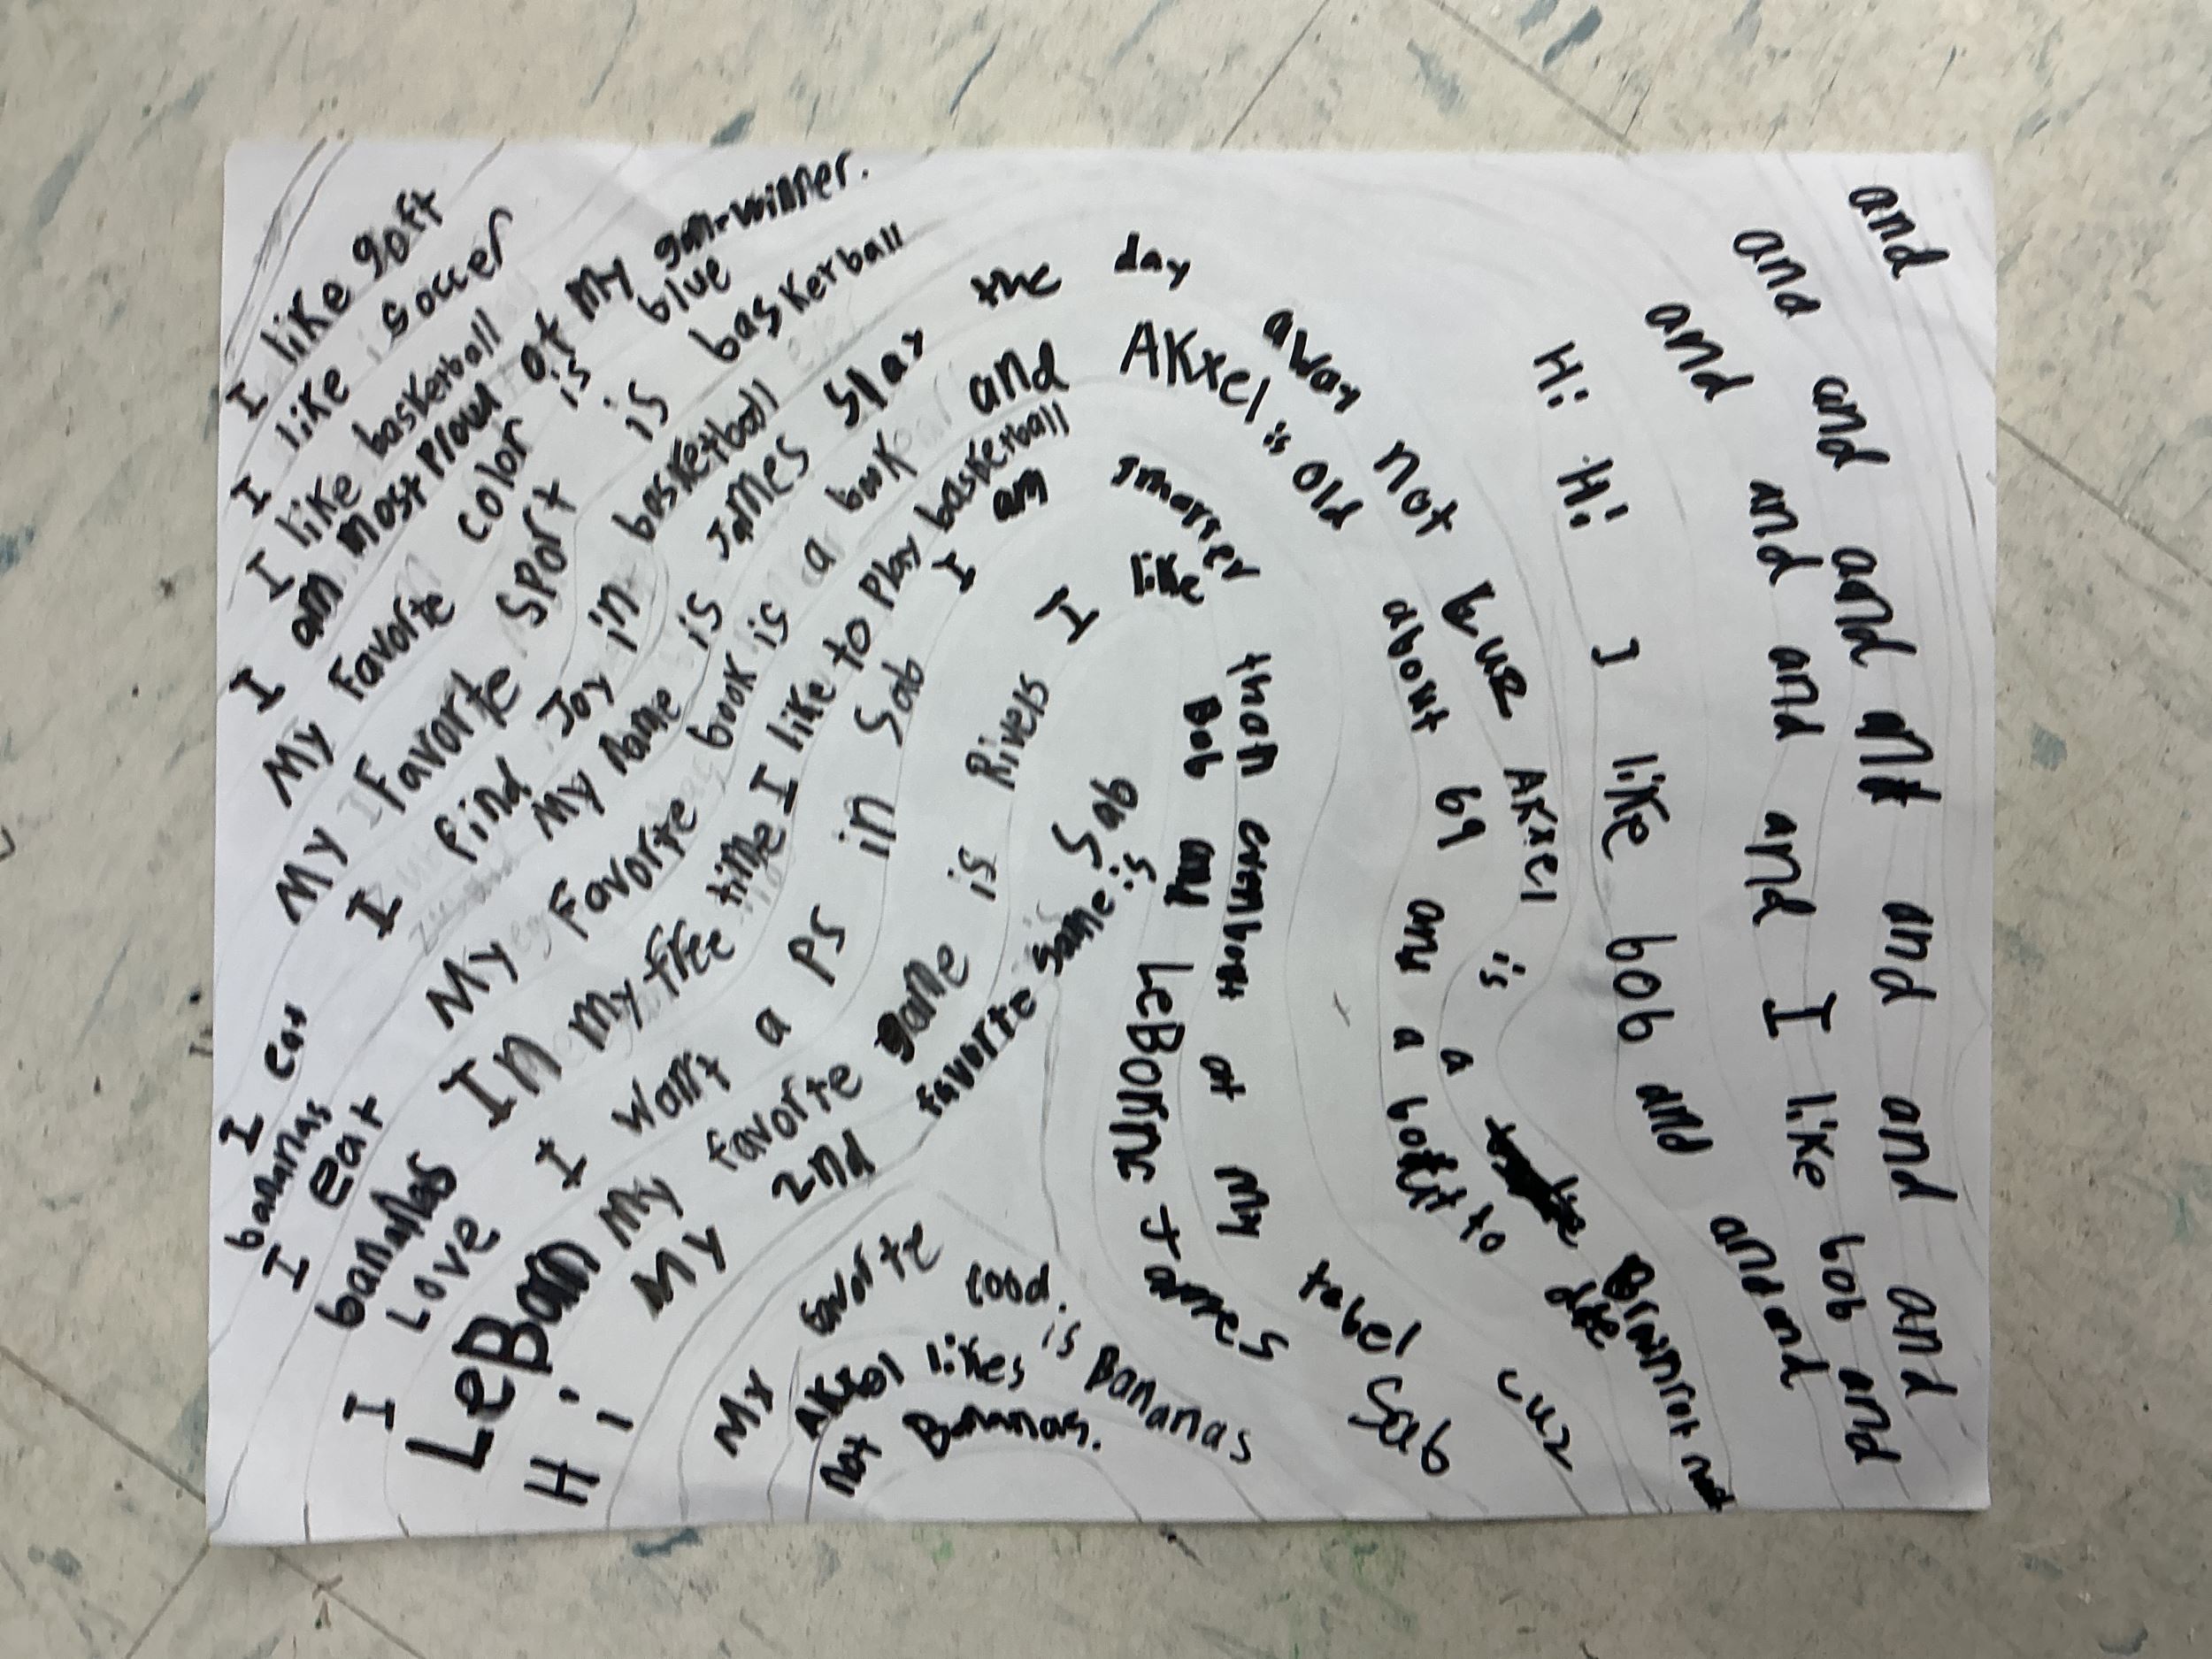 I like goft
I like soccer
I like basketball
I am most Proud of My gam-winner.
My Favorite color is blue
My Favorite Sport is basketball
I find Joy in basketball
My name is James Slay the day away not buz AKxel is a
My Favorite book is a book and AKxel is old about 69 and a
In my free time I like to Play basketball
I want a PS in Sab I am smarter than at My tabel Sab
My favorite game is Rivels I like Bob
My 2nd favorite game is Sab
I eat bananas
I eat bananas
I Love LeBan
Hi
My favorite food. is Bananas
AKxel likes not Bananas.
James
cuz
Hi Hi I like bob and and and
and and and and and and I like bob and
and and and and and and and